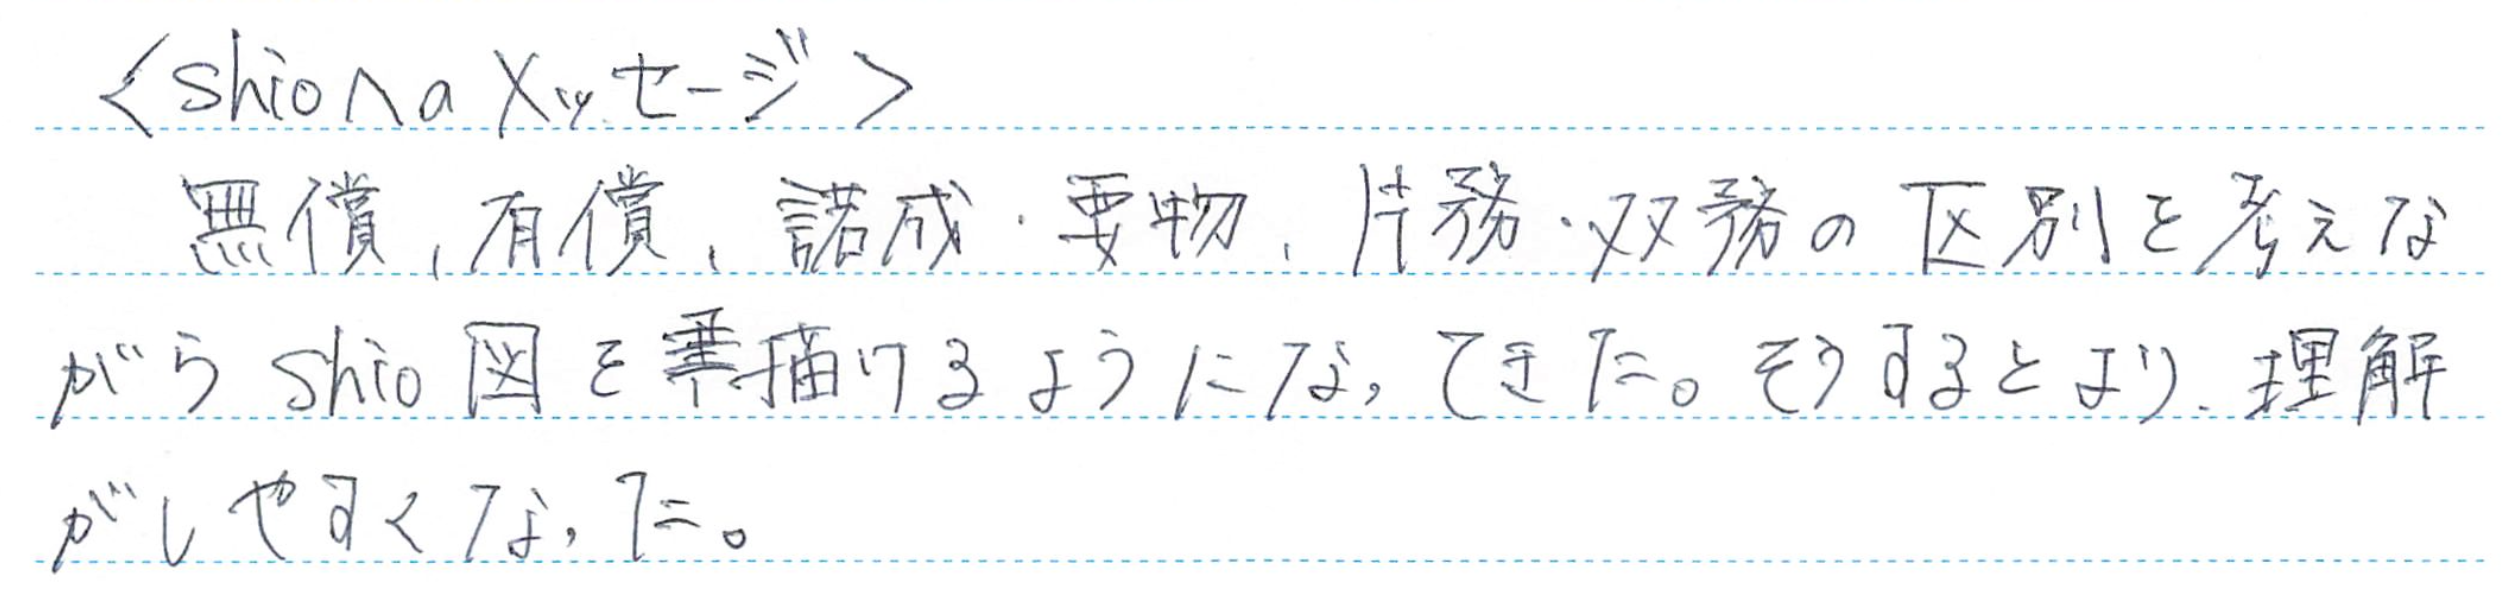 <shioへのメッセージ>
無償、有償、諾成・要物、片務・双務の区別を考えな
がらshio図を描けるようになってきた。そうするとより、理解
がしやすくなった。